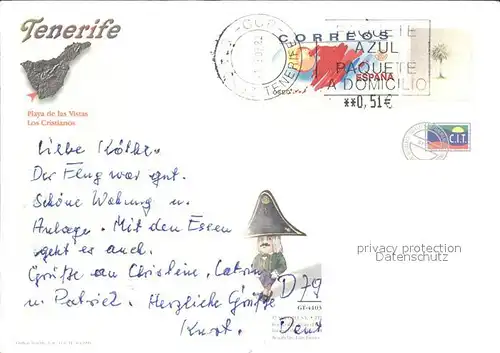 Tenerife
CORREOS
ESPAÑA
PAQUETE
AZUL
PAQUETE
A DOMICILIO
**0,51€
TENERIFE
C.I.T.
Playa de las Vistas
Los Cristianos
Liebe
Der Flug war gut.
Schöne Wohnung u.
Anlage. Mit den Essen
geht es auch.
Grüße an Christine,
u. Patrick. Herzliche Grüße
Kurt.
D 79
Deut
privacy protection
Datenschutz